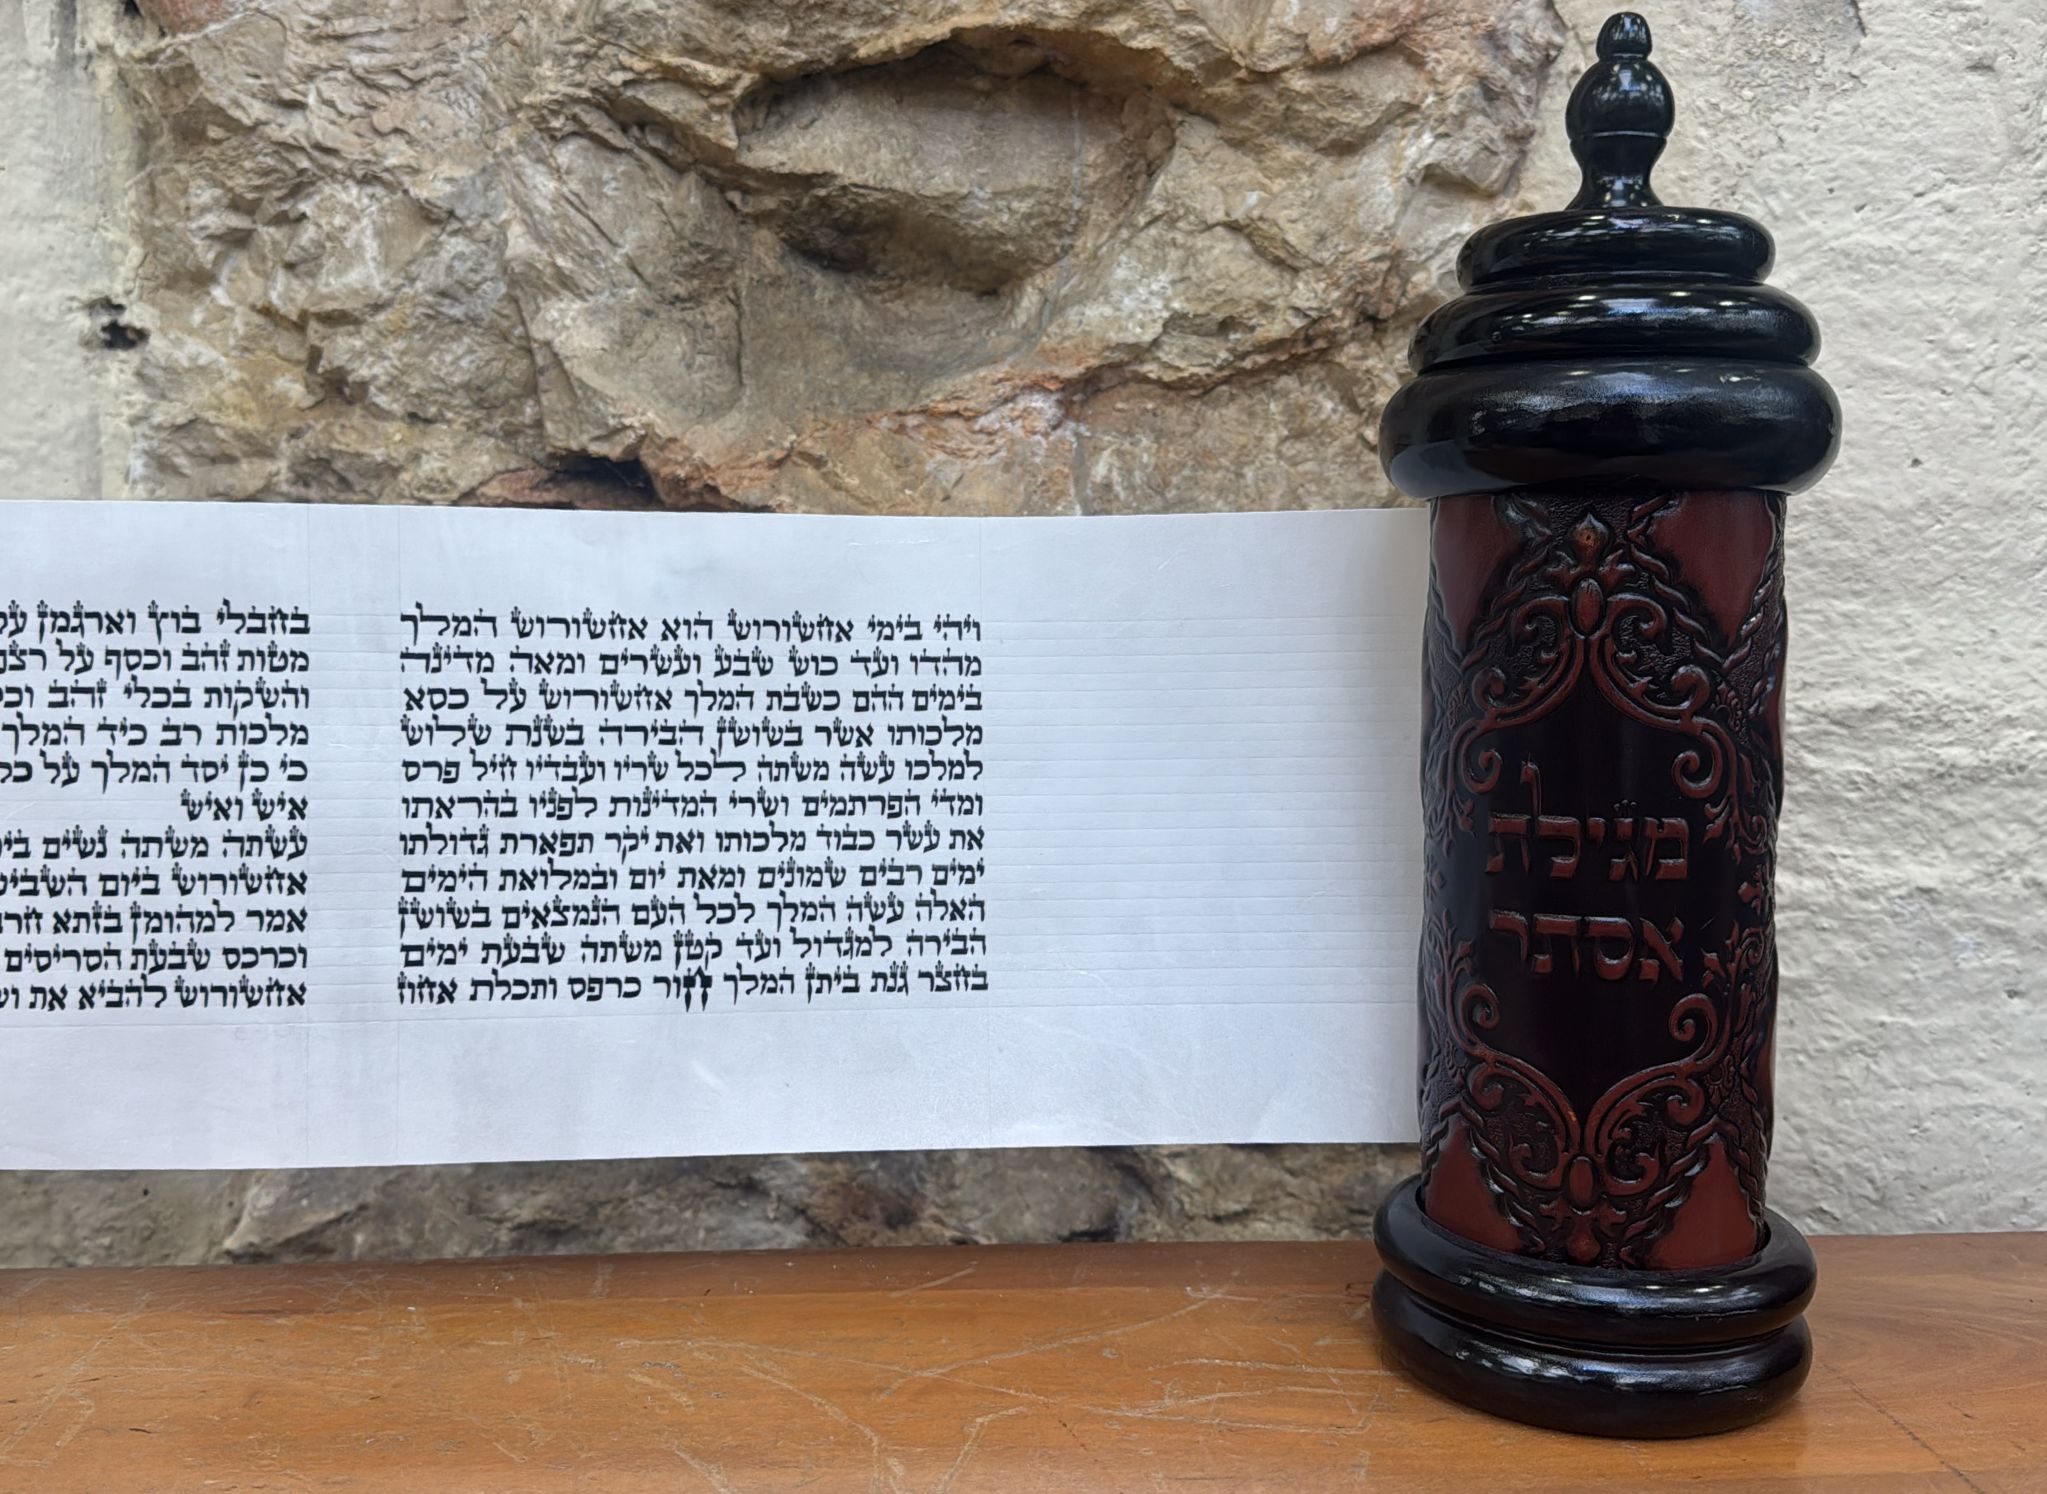 מגילת
אסתר
ויהי בימי אחשורוש הוא אחשורוש המלך
מהדו ועד כוש שבע ועשרים ומאה מדינה
בימים ההם כשבת המלך אחשורוש על כסא
מלכותו אשר בשושן הבירה בשנת שלוש
למלכו עשה משתה לכל שריו ועבדיו חיל פרס
ומדי הפרתמים ושרי המדינות לפניו בהראתו
את עשר כבוד מלכותו ואת יקר תפארת גדולתו
ימים רבים שמונים ומאת יום ובמלואת הימים
האלה עשה המלך לכל העם הנמצאים בשושן
הבירה למגדול ועד קטן משתה שבעת ימים
בחצר גנת ביתן המלך חור כרפס ותכלת אחוז
בחבלי בוץ וארגמן על
מטות זהב וכסף על
והשקות בכלי זהב
מלכות רב כיד המלך
כי כן יסד המלך על כל
איש ואיש
עשתה משתה נשים
אחשורוש ביום
אמר למהומן בזתא
וכרכס שבעת הסריסים
אחשורוש להביא את